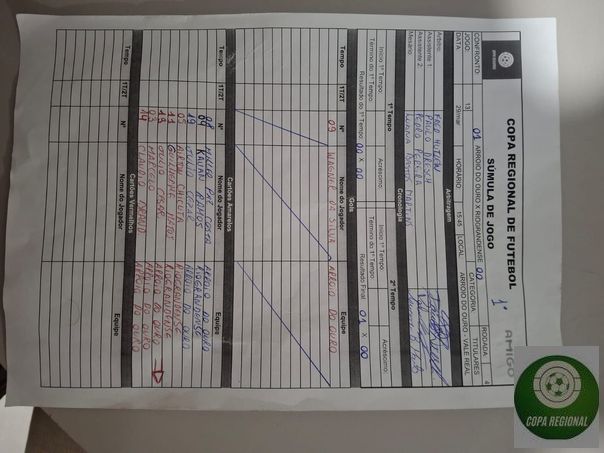 COPA REGIONAL DE FUTEBOL
SÚMULA DE JOGO
1ª
AMIGO
CONFRONTO: 01 ARROIO DO OURO X RIOGRANDENSE 00
CATEGORIA TITULARES
RODADA 4
JOGO: 13
DATA: 29/mar HORÁRIO: 15:45 LOCAL: ARROIO DO OURO - VALE REAL
Arbitragem
Árbitro:
Assistente 1: PAULO
Assistente 2: PEDRO PEREIRA
Mesário: MARTINS
Cronologia
1º Tempo 2º Tempo
Início 1º Tempo Acréscimo: Início 1º Tempo Acréscimo:
Término do 1º Tempo Término do 1º Tempo
Resultado do 1º Tempo 00 X 00 Resultado Final 01 X 00
Gols
Tempo 1T/2T Nº Nome do Jogador Equipe
09 WAGNER DA SILVA ARROIO DO OURO
Cartões Amarelos
Tempo 1T/2T Nº Nome do Jogador Equipe
08 ARROIO DO OURO
KAUAN RAMOS RIOGRANDENSE
19 JULIO ARROIO DO OURO
05 RIOGRANDENSE
11 GUILHERME RIOGRANDENSE
19 JULIO CESAR ARROIO DO OURO
03 ARROIO DO OURO
14 CLAUDIO ARROIO DO OURO
Cartões Vermelhos
Tempo 1T/2T Nº Nome do Jogador Equipe
COPA REGIONAL